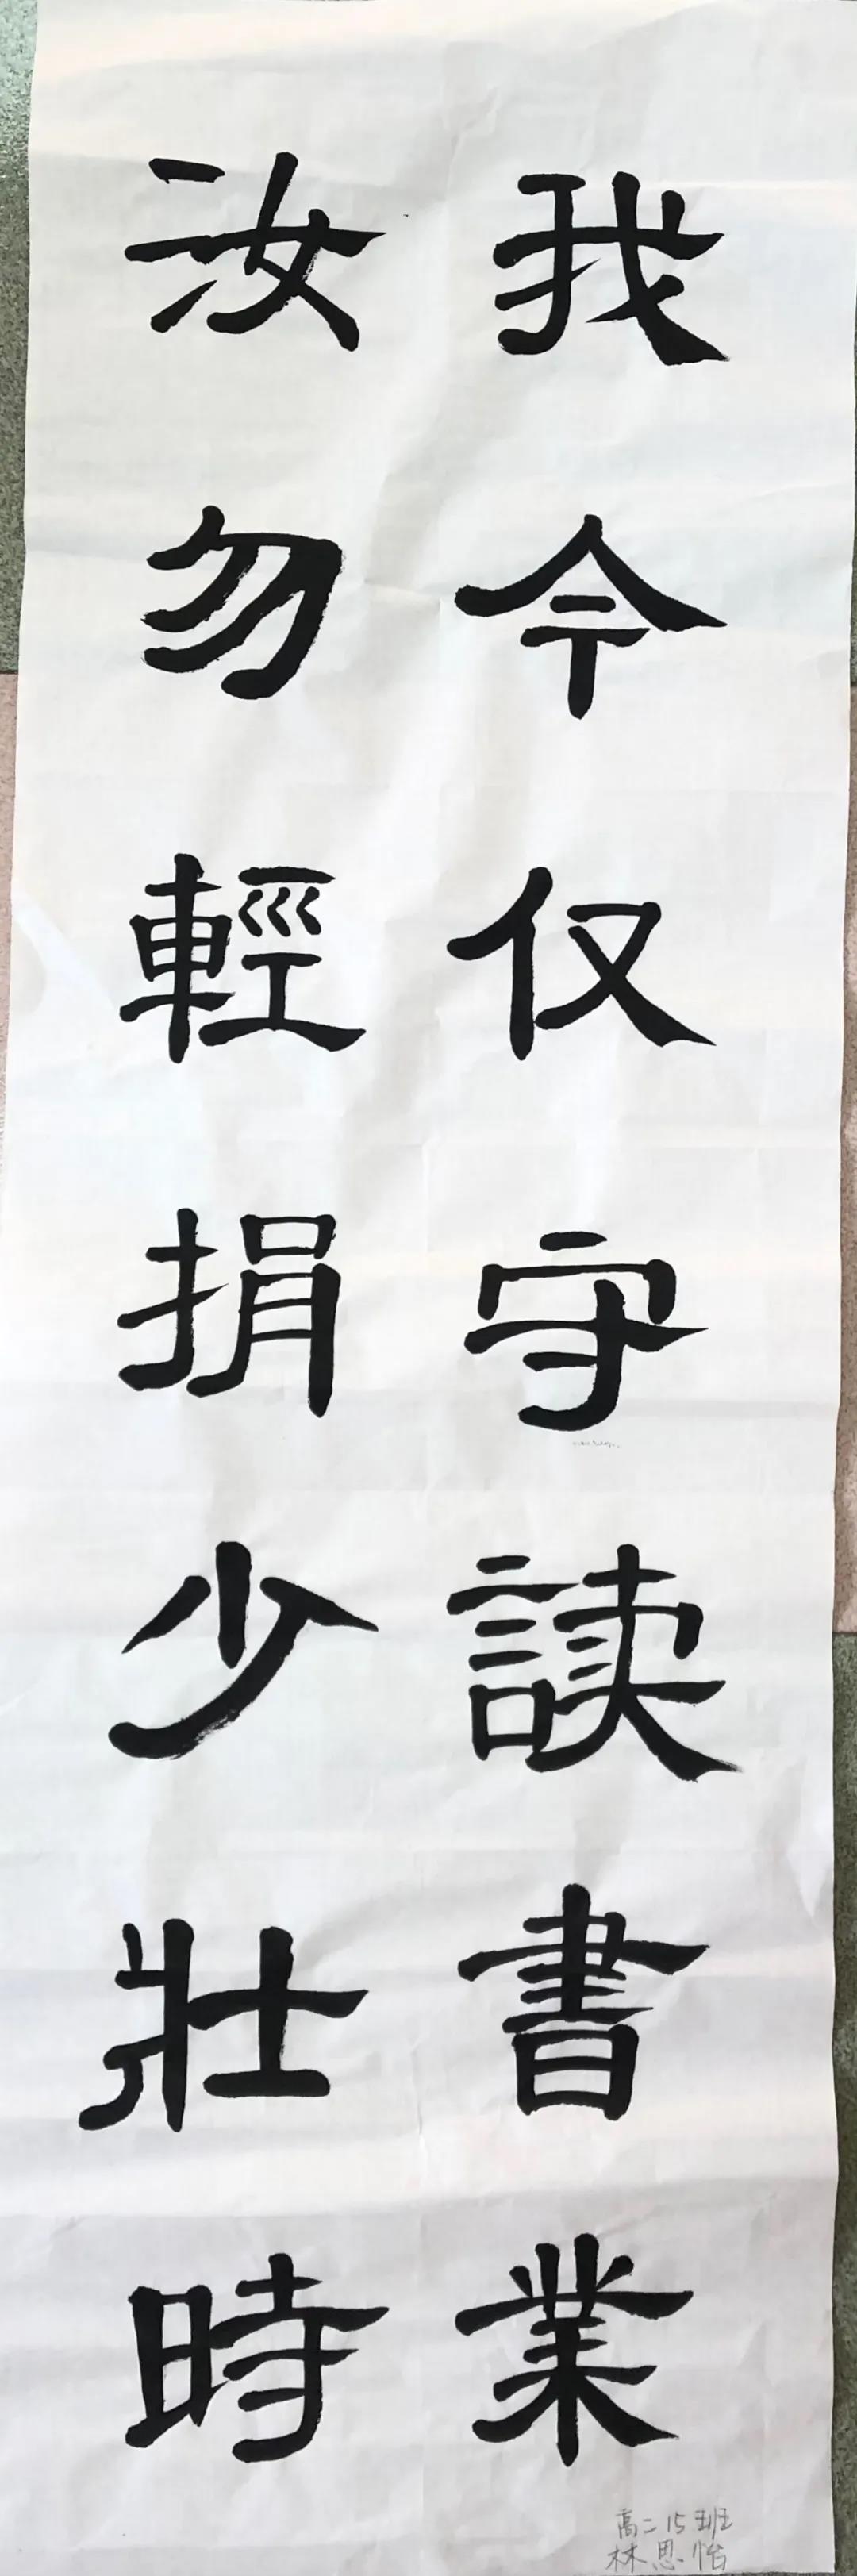 我今仅守读書業
汝勿輕捐少壯時
高二15班
林思怡